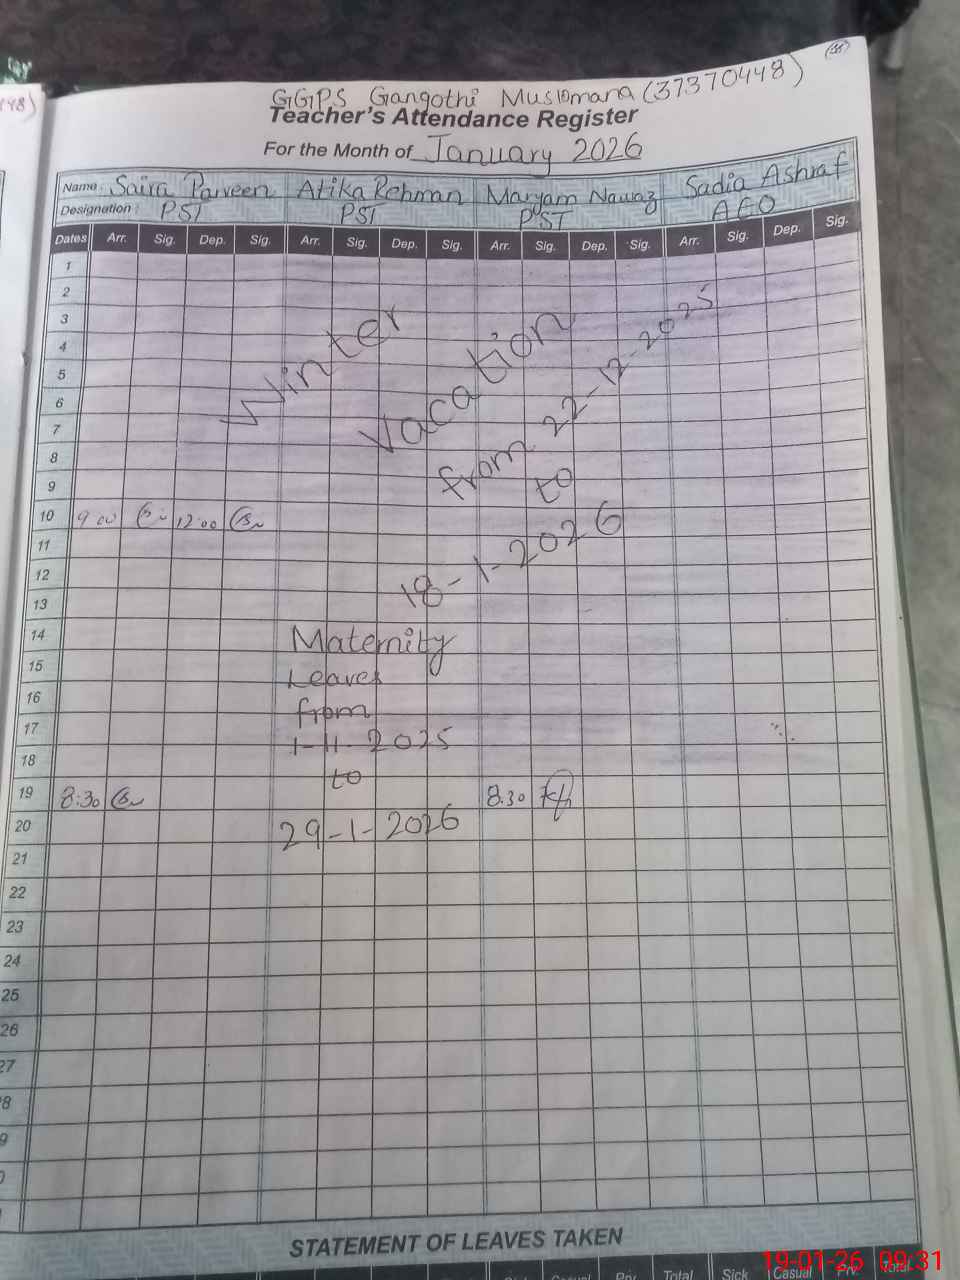 448)
38
GGPS Gangothi Muslomana (37370448)
Teacher's Attendance Register
For the Month of January 2026
Name: Saira Parveen Atika Rehman Maryam Nawaz Sadia Ashraf
Designation: PST PST PST AEO
Dates Arr. Sig. Dep. Sig. Arr. Sig. Dep. Sig. Arr. Sig. Dep. Sig. Arr. Sig. Dep. Sig.
1
2
3
4
5
6
7
8
9
Winter
Vacation
from 22-12-2025
to
18-1-2026
10 9 00 12:00
11
12
13
14 Maternity
15 Leaves
16 from
17 1-11-2025
18 to
19 8:30 8.30
20 29-1-2026
21
22
23
24
25
26
27
8
9
STATEMENT OF LEAVES TAKEN
Casual Prv. Total Sick Casual Prv. Total
19-01-26 09:31